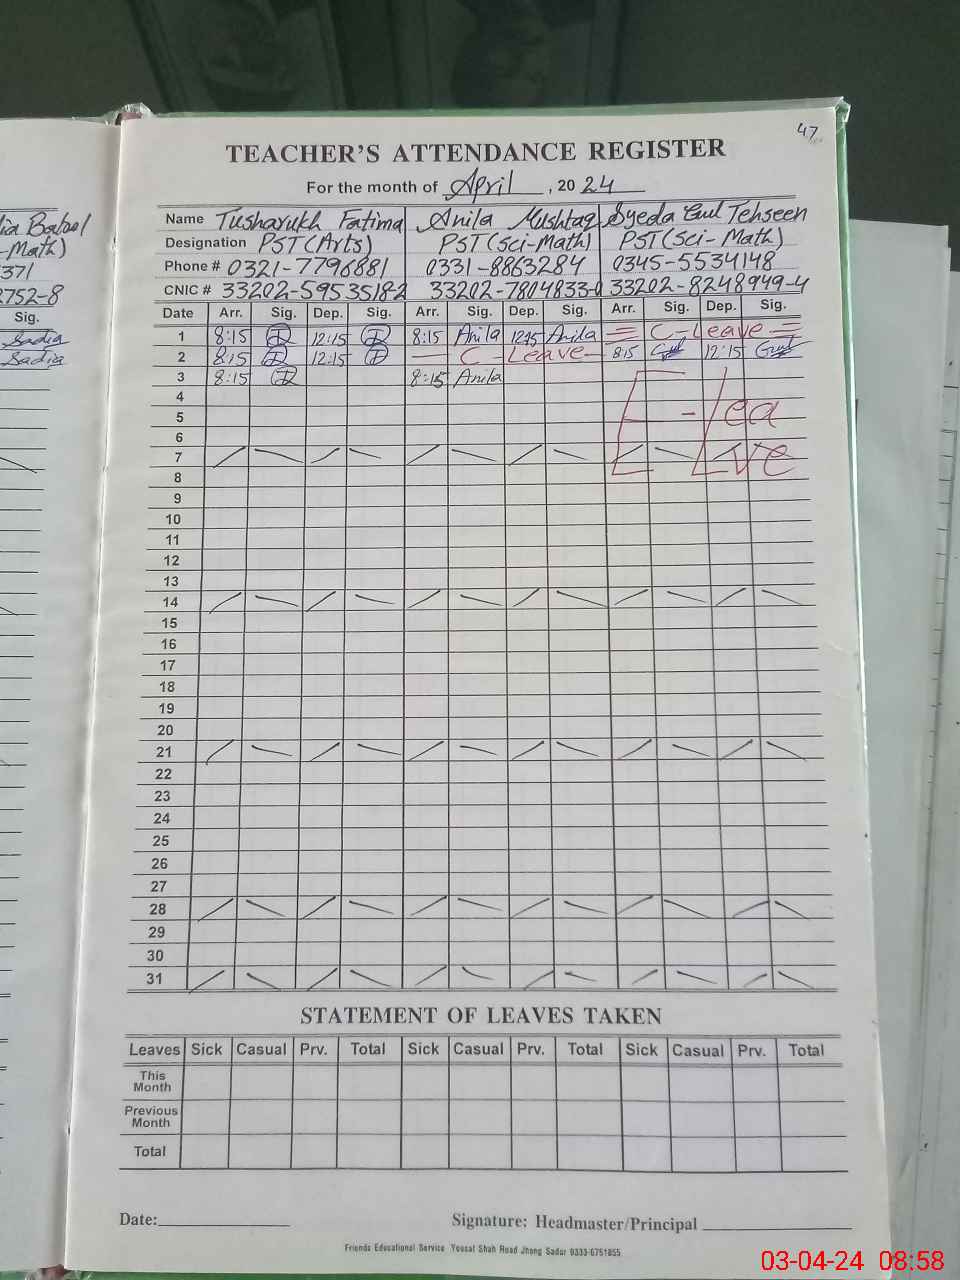 47
TEACHER'S ATTENDANCE REGISTER
For the month of April, 2024
Name Tusharukh Fatima Anila Mushtaq Syeda Gul Tehseen
Designation PST(Arts) PST(Sci-Math) PST(Sci-Math)
Phone # 0321-7796881 0331-8863284 0345-5534148
CNIC # 33202-5953518-2 33202-7804833-0 33202-8248949-4
Date Arr. Sig. Dep. Sig. Arr. Sig. Dep. Sig. Arr. Sig. Dep. Sig.
1 8:15 12:15 8:15 Anila 12:15 Anila C-Leave
2 8:15 12:15 C-Leave 8:15 Gul 12:15 Gul
3 8:15 8:15 Anila
4
5 E-Lea
6
7 ve
8
9
10
11
12
13
14
15
16
17
18
19
20
21
22
23
24
25
26
27
28
29
30
31
-Math)
371
2752-8
Sig.
Sadia
Sadia
STATEMENT OF LEAVES TAKEN
Leaves Sick Casual Prv. Total Sick Casual Prv. Total Sick Casual Prv. Total
This Month
Previous Month
Total
Date: Signature: Headmaster/Principal
Friends Educational Service Yousaf Shah Road Jhang Sadar 0333-6751855
03-04-24 08:58